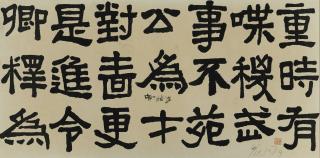 重時有
喋稷武
事不苑
公為才
對嗇更
是進令
卿釋為